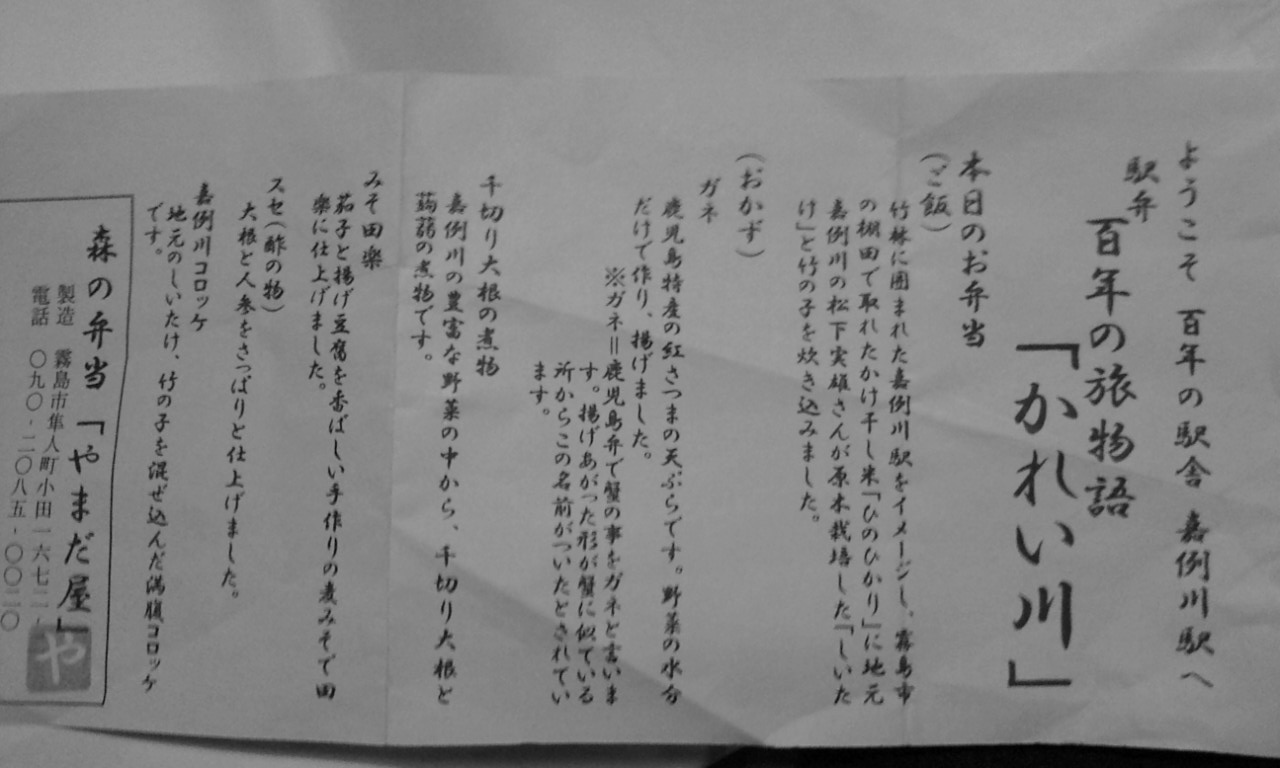 ようこそ 百年の駅舎 嘉例川駅へ
駅弁
百年の旅物語
「かれい川」
本日のお弁当
(ご飯)
竹林に囲まれた嘉例川駅をイメージし、霧島市
の棚田で取れたかけ干し米「ひのひかり」に地元
嘉例川の松下実雄さんが原木栽培した「しいた
け」と竹の子を炊き込みました。
(おかず)
ガネ
鹿児島特産の紅さつまの天ぷらです。野菜の水分
だけで作り、揚げました。
※ガネ=鹿児島弁で蟹の事をガネと言いま
す。揚げあがった形が蟹に似ている
所からこの名前がついたとされてい
ます。
千切り大根の煮物
嘉例川の豊富な野菜の中から、千切り大根と
蒟蒻の煮物です。
みそ田楽
茄子と揚げ豆腐を香ばしい手作りの麦みそで田
楽に仕上げました。
スセ(酢の物)
大根と人参をさっぱりと仕上げました。
嘉例川コロッケ
地元のしいたけ、竹の子を混ぜ込んだ満腹コロッケ
です。
森の弁当「やまだ屋」
製造 霧島市隼人町小田一六七二-
電話 〇九〇-二〇八五-〇〇二〇
や